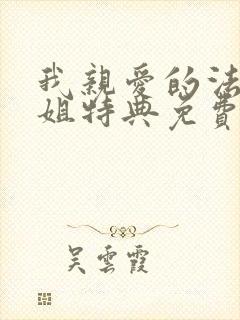 我親愛的法
姐特典免費
吳雲霞